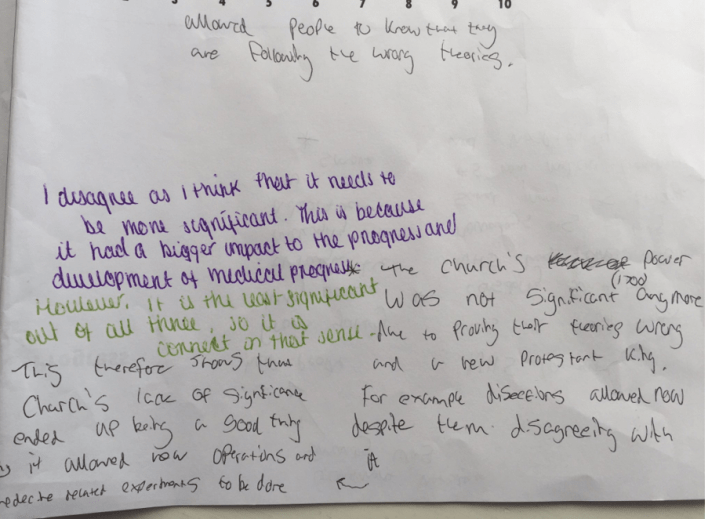 4 5 6 7 8 9 10
allowed people to know that they
are following the wrong theories.
I disagree as I think that it needs to
be more significant. This is because
it had a bigger impact to the progress and
development of medical progress
However, it is the least significant
out of all three, so it is
connect in that sense.
* The church's power
(1700)
was not significant anymore
due to proving their theories wrong
and a new Protestant King.
For example disections allowed now
despite them disagreeing with
it
This therefore shows
Church's lack of significance
ended up being a good thing
it allowed now operations and
related experiments to be done